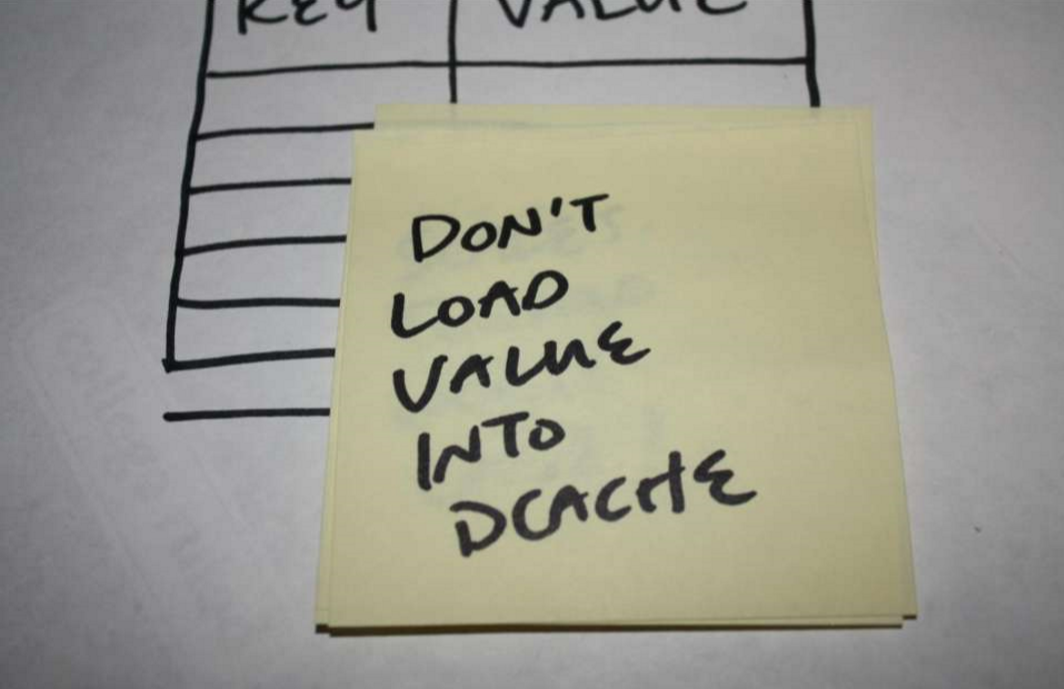 KEY VALUE
DON'T
LOAD
VALUE
INTO
DCACHE